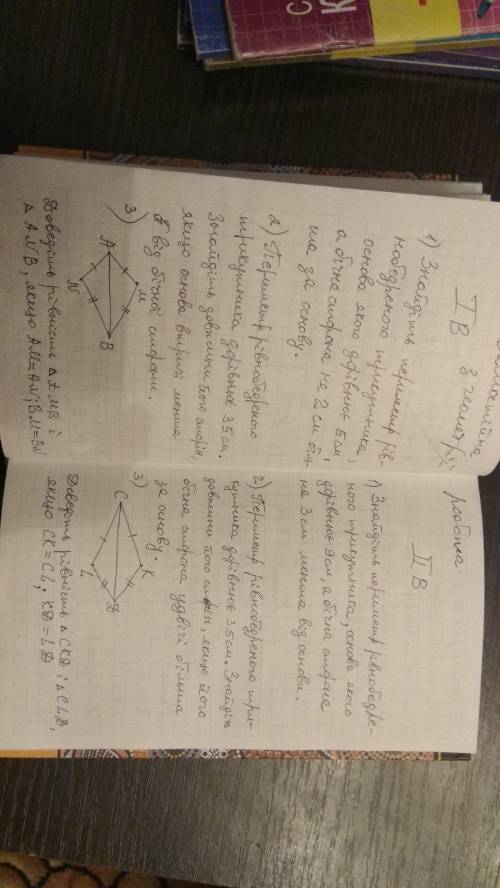 з геометрії
І В
1) Знайдіть периметр рів-
нобедреного трикутника,
основа якого дорівнює 5 см,
а бічна сторона на 2 см біль-
ша за основу.
2) Периметр рівнобедреного
трикутника дорівнює 35 см.
Знайдіть довжини його сторін,
якщо основа втричі менша
від бічної сторони.
3)
M
A
B
N
Доведіть рівність △ AMB і
△ ANB, якщо AM=AN; BM=BN
робота
ІІ В
1) Знайдіть периметр рівнобедре-
ного трикутника, основа якого
дорівнює 9 см, а бічна сторона
на 3 см менша від основи.
2) Периметр рівнобедреного три-
кутника дорівнює 35 см. Знайдіть
довжини його сторін, якщо його
бічна сторона удвічі більша
за основу.
3)
K
C
D
L
Доведіть рівність △ CKD і △ CLD,
якщо CK=CL; KD=LD
С
К